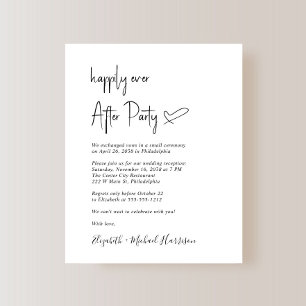 happily ever
After Party
We exchanged vows in a small ceremony
on April 26, 2030 in Philadelphia
Please join us for our wedding reception:
Saturday, November 16, 2030 at 7 PM
The Center City Restaurant
222 W Main St, Philadelphia
Regrets only before October 22
to Elizabeth at 555-555-1212
We can't wait to celebrate with you!
With love,
Elizabeth + Michael Harrison